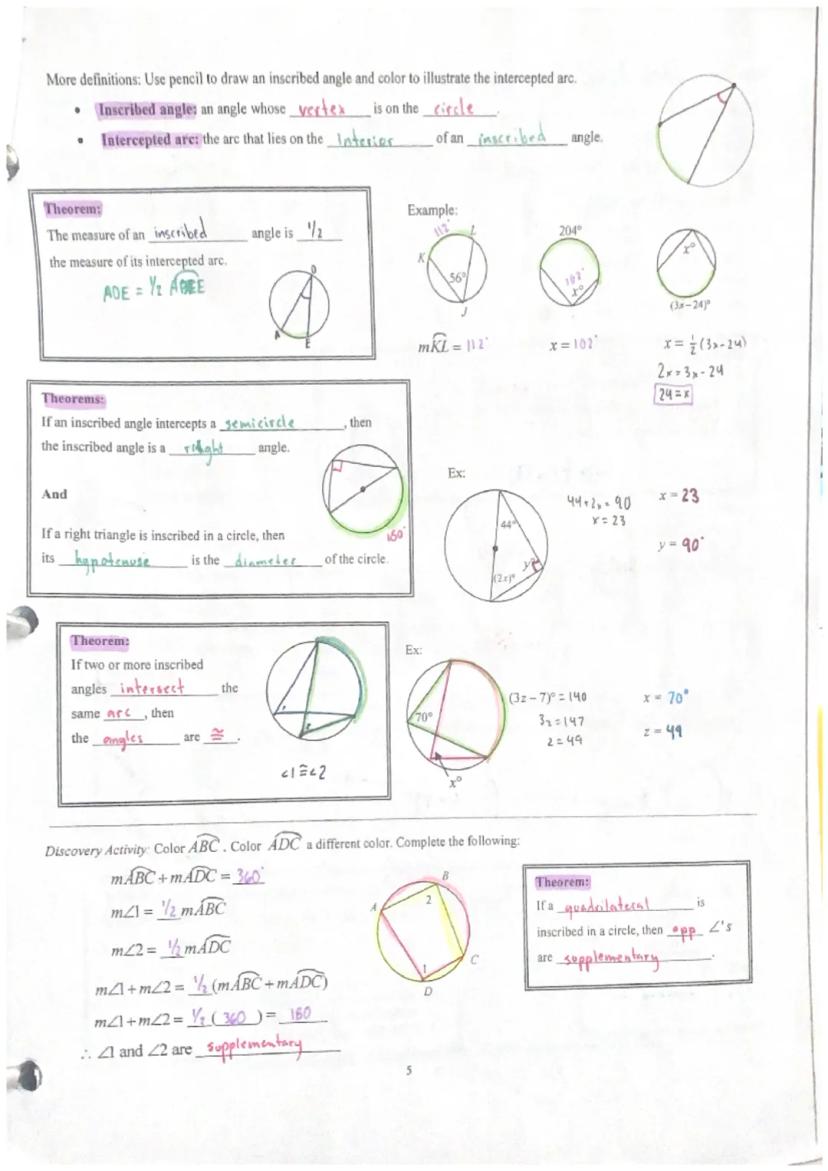 More definitions: Use pencil to draw an inscribed angle and color to illustrate the intercepted arc.
• Inscribed angle: an angle whose vertex is on the circle.
• Intercepted arc: the arc that lies on the Interior of an inscribed angle.
Theorem:
The measure of an inscribed angle is 1/2
the measure of its intercepted arc.
ADE = 1/2
D
A
E
Example:
112°
L
K
56°
J
mKL = 112°
204°
102°
x°
x = 102°
x°
(3x−24)°
x = 1/2 (3x-24)
2x = 3x - 24
24 = x
Theorems:
If an inscribed angle intercepts a semicircle, then
the inscribed angle is a right angle.
And
If a right triangle is inscribed in a circle, then
its hypotenuse is the diameter of the circle.
180°
Ex:
44°
y°
(2x)°
44+2x = 90
x = 23
x = 23
y = 90°
Theorem:
If two or more inscribed
angles intersect the
same arc, then
the angles are ≅.
<1 ≅ <2
Ex:
70°
x°
(3z − 7)° = 140
3z = 147
z = 49
x = 70°
z = 49
Discovery Activity: Color ABC. Color ADC a different color. Complete the following:
mABC + mADC = 360°
m∠1 = 1/2 mABC
m∠2 = 1/2 mADC
m∠1 + m∠2 = 1/2 (mABC + mADC)
m∠1 + m∠2 = 1/2 (360) = 180
∴ ∠1 and ∠2 are supplementary
B
A
2
1
C
D
Theorem:
If a quadrilateral is
inscribed in a circle, then opp ∠'s
are supplementary.
5